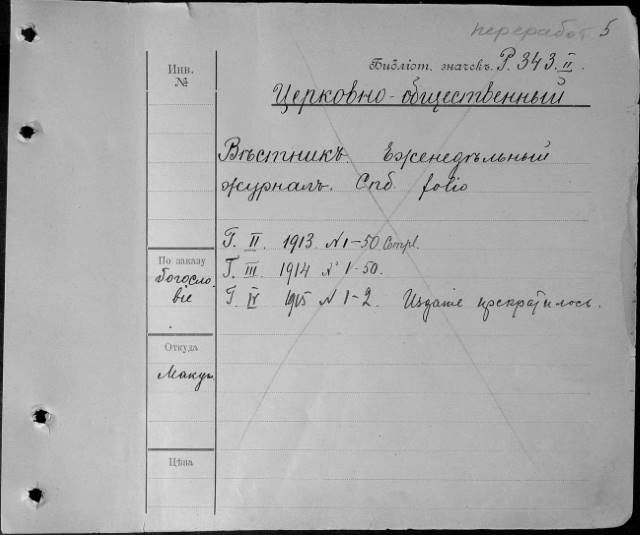 переработ. 5
Инв.
№
Библіот. значекъ. P. 343. II.
Церковно-общественный
Вѣстникъ. Еженедѣльный
журналъ. Спб. folio
Г. II. 1913 N 1-50. Compl.
По заказу
Богосло-
віе
Г. III. 1914 N 1-50.
Г. IV 1915 N 1-2. Изданіе прекратилось.
Откуда
Цѣна